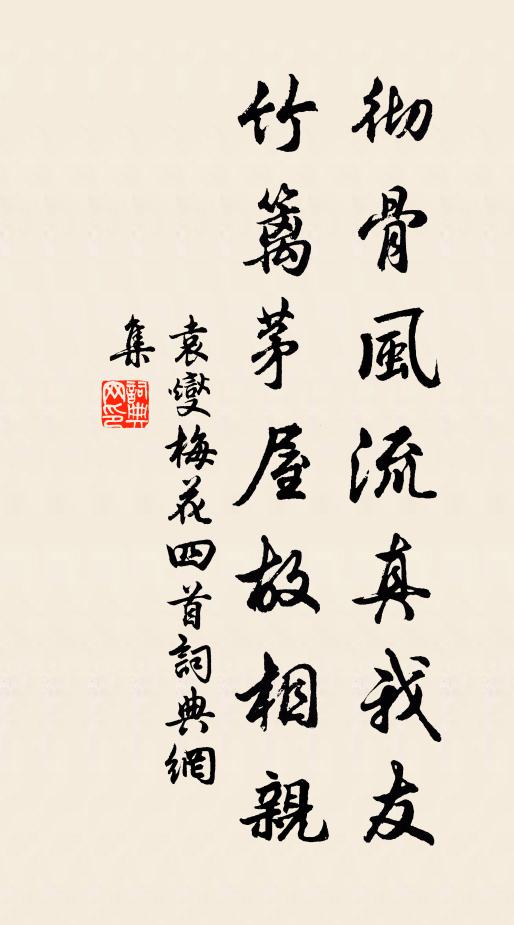 彻骨風流真我友
竹篱茅屋故相親
袁燮梅花四首詞典網
集
詞典网印